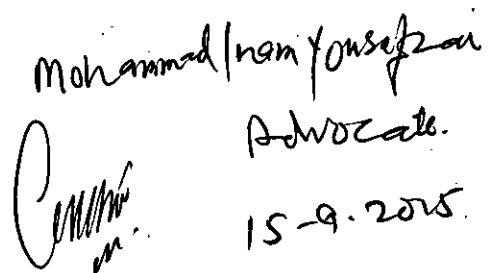 Mohammad Inam Yousafzai
Advocate.
15-9-2015.